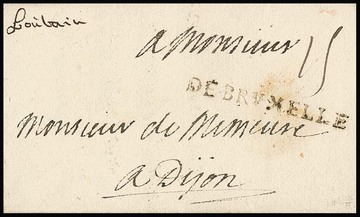 Louvain
a Monsieur
15
DE BRVXELLE
Monsieur de Mimeure
a Dijon